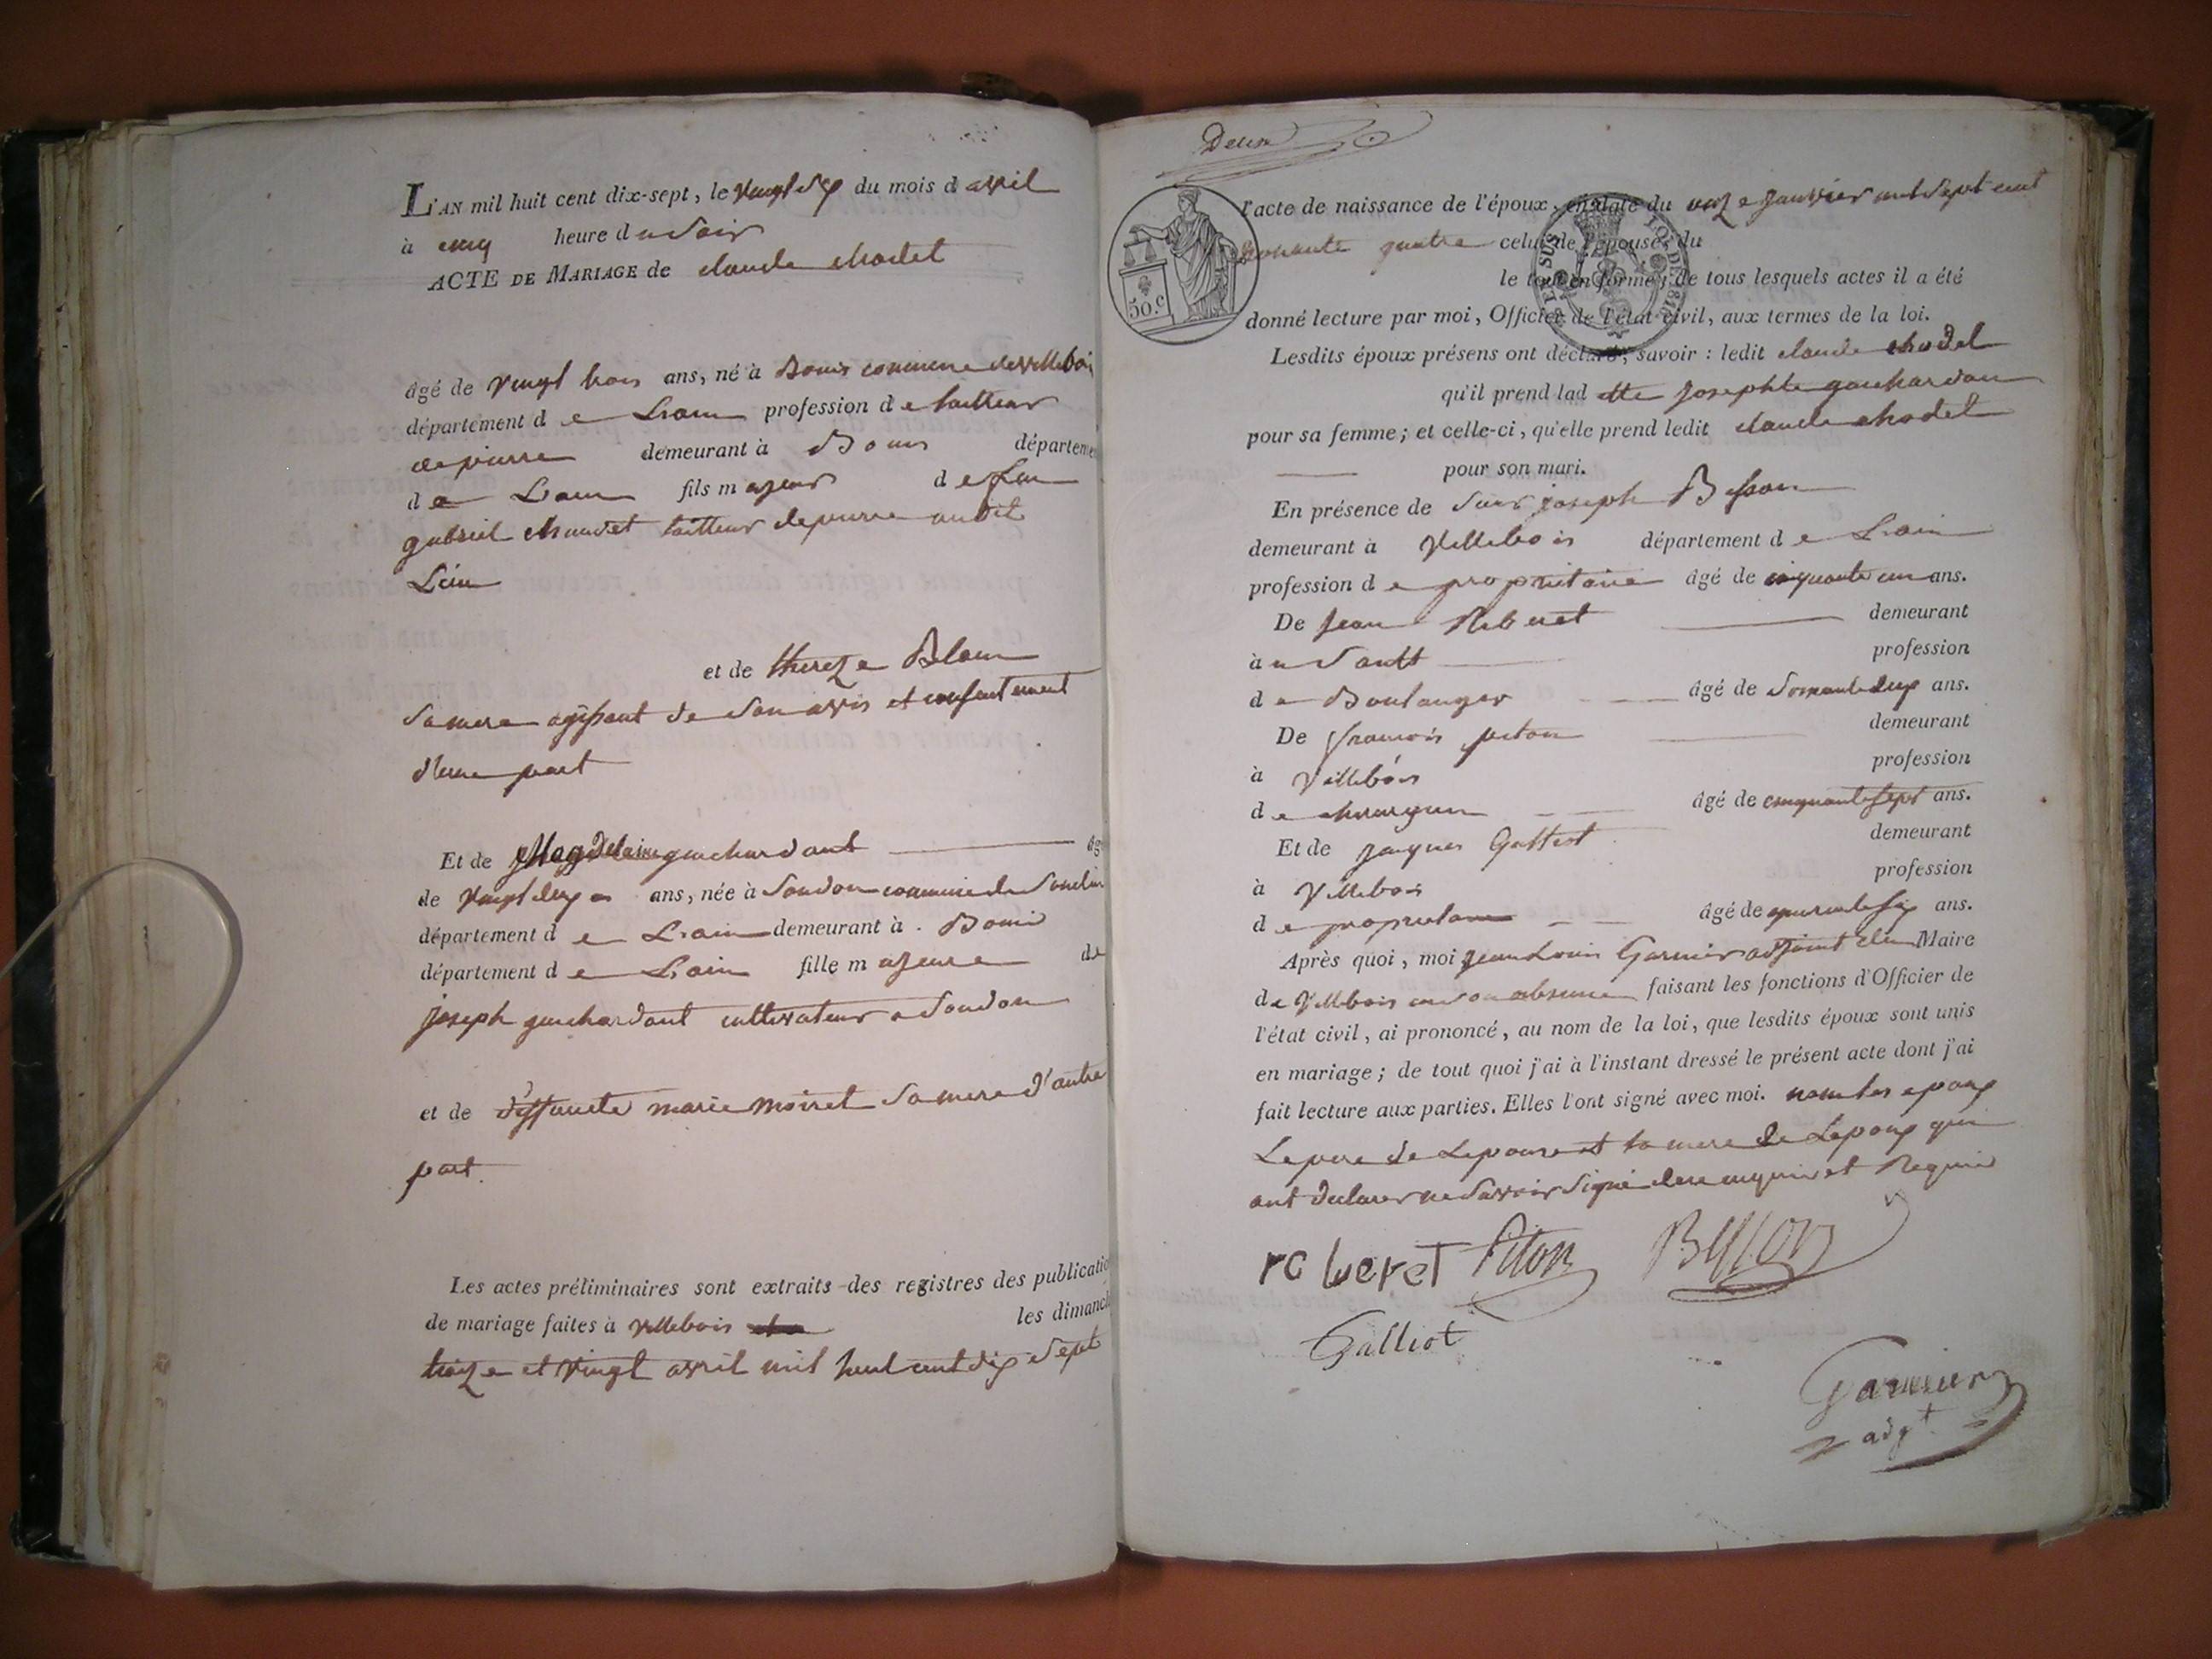 L'AN mil huit cent dix-sept, le vingt six du mois d avril
à cinq heure du soir
ACTE DE MARIAGE de claude chodet
âgé de vingt trois ans, né à Bouis commune de villebois
département d e Lain profession d e tailleur
de pierre demeurant à Bouis départeme
d e Lain fils majeur d e feu
gabriel chaudet tailleur de pierre audit
Lieu
et de thereze Blanc
sa mere agissant de son avis et consentement
d'une part
Et de Magdelaine guichardant âg
de vingt deux ans, née à Soudon commune de Souclin
département d e Lain demeurant à Bouis
département d e Lain fille majeure de
joseph guichardant cultivateur a Soudon
et de deffuncte marie moiret sa mere d'autre
part.
Les actes préliminaires sont extraits des registres des publicatio
de mariage faites à villebois les dimanch
treize et vingt avril mil huit cent dix sept
Deux
50.c
l'acte de naissance de l'époux, en date du onze janvier mil sept cent
nonante quatre celui de l'épouse, du
le tout en forme; de tous lesquels actes il a été
donné lecture par moi, Officier de l'état civil, aux termes de la loi.
Lesdits époux présens ont déclaré, savoir : ledit claude chodel
qu'il prend lad itte josephte guichardan
pour sa femme; et celle-ci, qu'elle prend ledit claude chodet
pour son mari.
En présence de sieur joseph Besson
demeurant à villebois département d e Lain
profession d e propriétaire âgé de cinquante un ans.
De jean Reberet demeurant
à u Sault profession
d e Boulanger âgé de soixante deux ans.
De françois piton demeurant
à villebois profession
d e chirurgien âgé de cinquante sept ans.
Et de jacques Galliot demeurant
à villebois profession
d e propriétaire âgé de quarante six ans.
Après quoi, moi jean Louis Garnier adjoint du Maire
de villebois en son absence faisant les fonctions d'Officier de
l'état civil, ai prononcé, au nom de la loi, que lesdits époux sont unis
en mariage; de tout quoi j'ai à l'instant dressé le présent acte dont j'ai
fait lecture aux parties. Elles l'ont signé avec moi. non les epoux
Le pere de Lepouse et la mere de Lepoux qui
ont declarer ne savoir signé de ce enquis et Requis
roberet Piton Besson
Galliot
Garnier
adjt